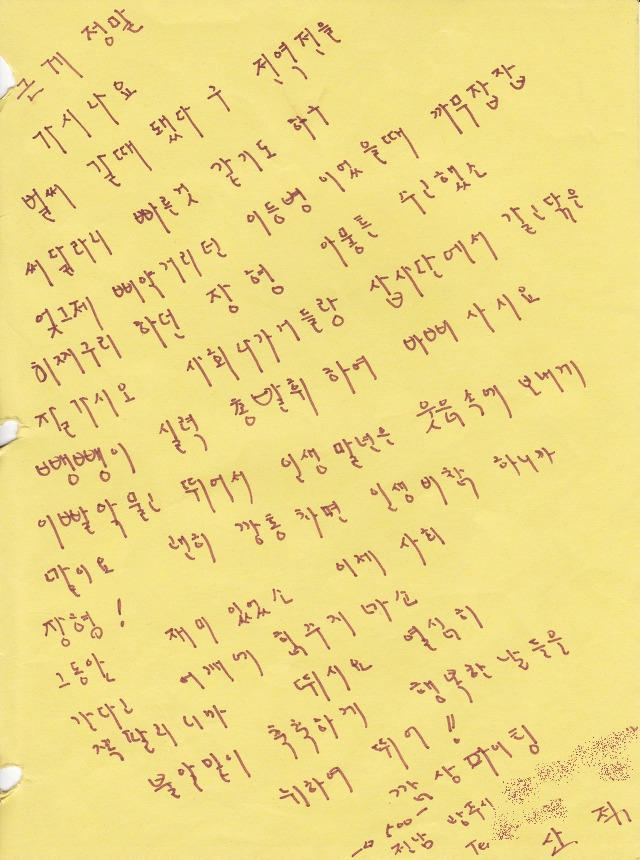 그게 정말
가시나요
벌써 갈때 됐다구 전역전을
써달라니 빠른것 같기도 하구
엊그제 삐약거리던 이등병 이었을때 까무잡잡
히쭈구리 하던 장형 아뭏튼 수고했소
잘가시요 사회나가거들랑 삽사단에서 갈고닦은
뺑뺑이 실력 총발휘하여 바삐 사시요
이빨악물고 뛰어서 인생말년은 웃음속에 보내기
말이요 괜히 깡통차면 인생비착 하니까
장형!
그동안 재미있었소 이제 사회
간다고 어깨에 힘주지 마소
쪽팔리니까 뛰시요 열심히
불알밑이 축축하게 행복한 날들을
위하여 뛰어!!
깝상 파이팅
전남 광주시
Tel